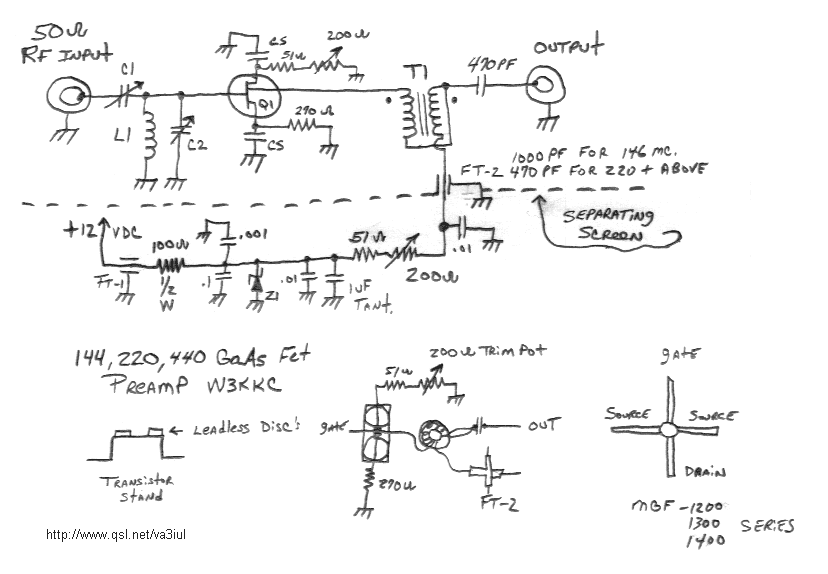 50Ω
RF INPUT
C1
L1
C2
CS
51Ω
200Ω
Q1
270Ω
CS
T1
470PF
OUTPUT
1000PF FOR 146 MC.
FT-2 470 PF FOR 220 + ABOVE
SEPARATING
SCREEN
+12 VDC
FT-1
100Ω
1/2
W
.001
.1
Z1
.01
1UF
TANT.
51Ω
200Ω
.01
144, 220, 440 GaAs Fet
PREAMP W3KKC
LEADLESS DISC'S
TRANSISTOR
STAND
51Ω
200Ω TRIM POT
gATE
OUT
270Ω
FT-2
gATE
SOURCE
SOURCE
DRAIN
MGF -1200
1300 SERIES
1400
http://www.qsl.net/va3iul